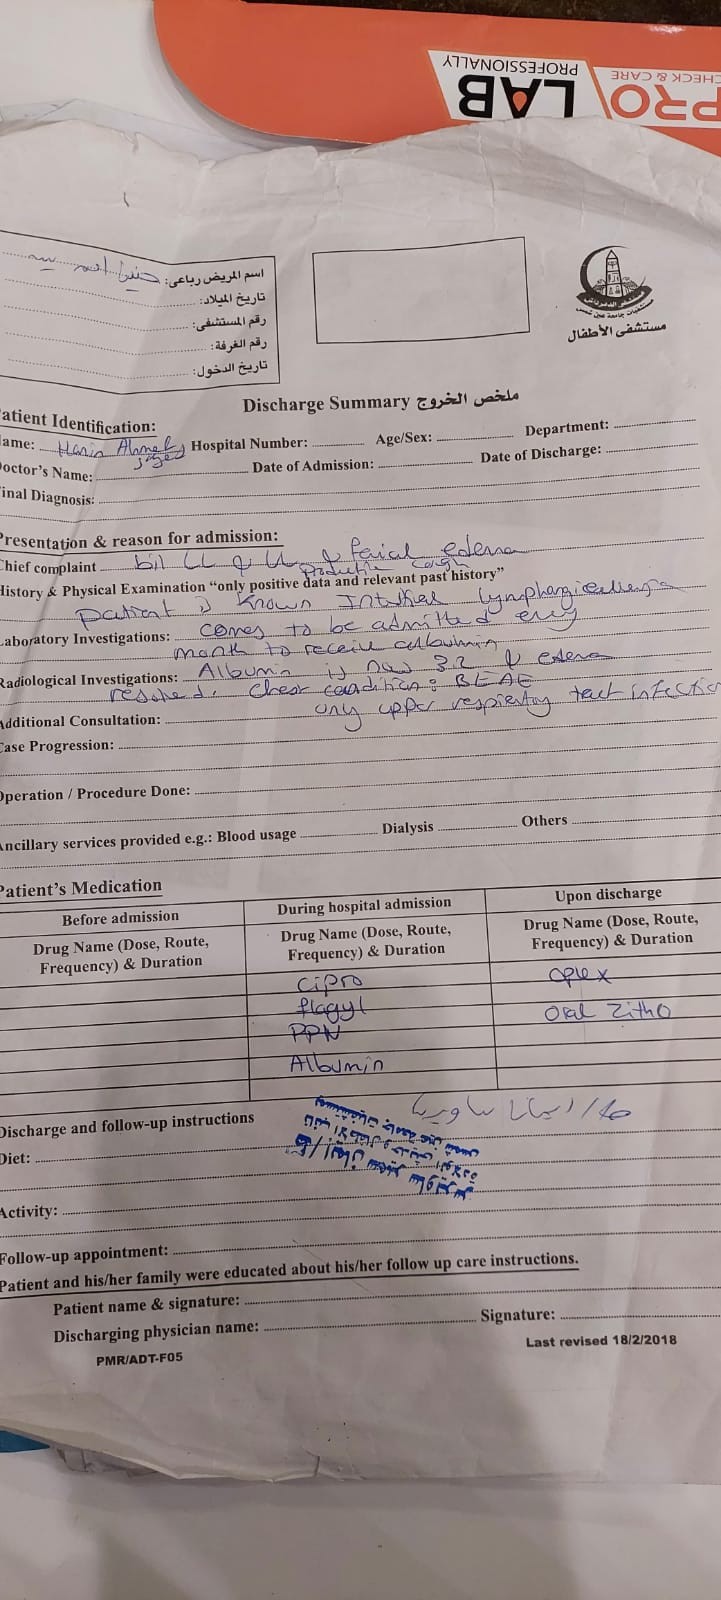 CHECK & CARE
PRO LAB
PROFESSIONALLY
اسم المريض رباعى:
تاريخ الميلاد:
رقم المستشفى:
رقم الغرفة:
تاريخ الدخول:
مستشفى الأطفال
Discharge Summary ملخص الخروج
atient Identification:
ame: Hanin Ahmed Hospital Number: Age/Sex: Department:
octor's Name: Date of Admission: Date of Discharge:
inal Diagnosis:
Presentation & reason for admission:
Chief complaint bil LL & UL & facial edema
productive cough
History & Physical Examination "only positive data and relevant past history"
patient is known lymphangiectasia
Laboratory Investigations: comes to be admitted every
month to receive albumin
Radiological Investigations: Albumin is now 3.2 & edema
resolved. Chest condition: BEAE
only upper respiratory tract infection
Additional Consultation:
Case Progression:
Operation / Procedure Done:
Ancillary services provided e.g.: Blood usage Dialysis Others
Patient's Medication
Before admission During hospital admission Upon discharge
Drug Name (Dose, Route, Frequency) & Duration Drug Name (Dose, Route, Frequency) & Duration Drug Name (Dose, Route, Frequency) & Duration
Cipro oplex
flagyl Oral Zithro
PPN
Albumin
Discharge and follow-up instructions
Diet:
Activity:
Follow-up appointment:
Patient and his/her family were educated about his/her follow up care instructions.
Patient name & signature:
Discharging physician name: Signature:
PMR/ADT-F05 Last revised 18/2/2018